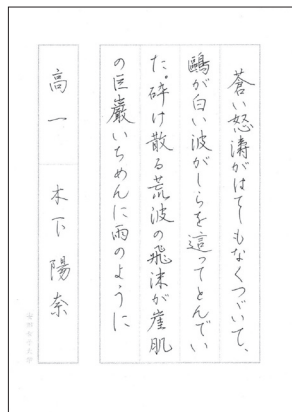 蒼い怒濤がはてしもなくつづいて、
鷗が白い波がしらを這ってとんでい
た。砕け散る荒波の飛沫が崖肌
の巨巌いちめんに雨のように
高一 木下陽奈